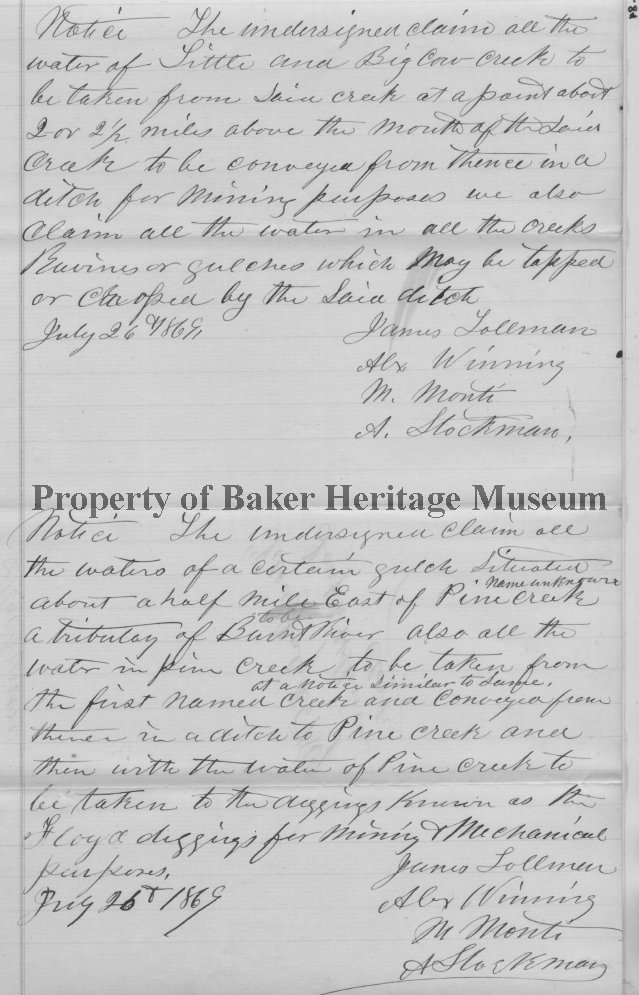 Notice The undersigned claim all the
water of Little and Big Cow creek to
be taken from said creek at a point about
2 or 2½ miles above the mouth of the said
Creek to be conveyed from thence in a
ditch for mining purposes we also
Claim all the water in all the creeks
Ravines or gulches which May be tapped
or Crossed by the said ditch
July 26th 1869,
James Tollman
Alx Winning
M. Monti
A. Stockman,
Property of Baker Heritage Museum
Notice The undersigned claim all
the waters of a certain gulch situated
Name unknown
about a half mile East of Pine creek
to be
a tributay of Burnt River also all the
water in pine creek to be taken from
at a Notice similar to same,
the first named creek and conveyed from
thence in a ditch to Pine creek and
then with the water of Pine creek to
be taken to the diggings Known as the
Floyd diggings for Mining & Mechanical
purposes,
July 26th 1869
James Tollman
Alex Winning
M Monti
A Stockman